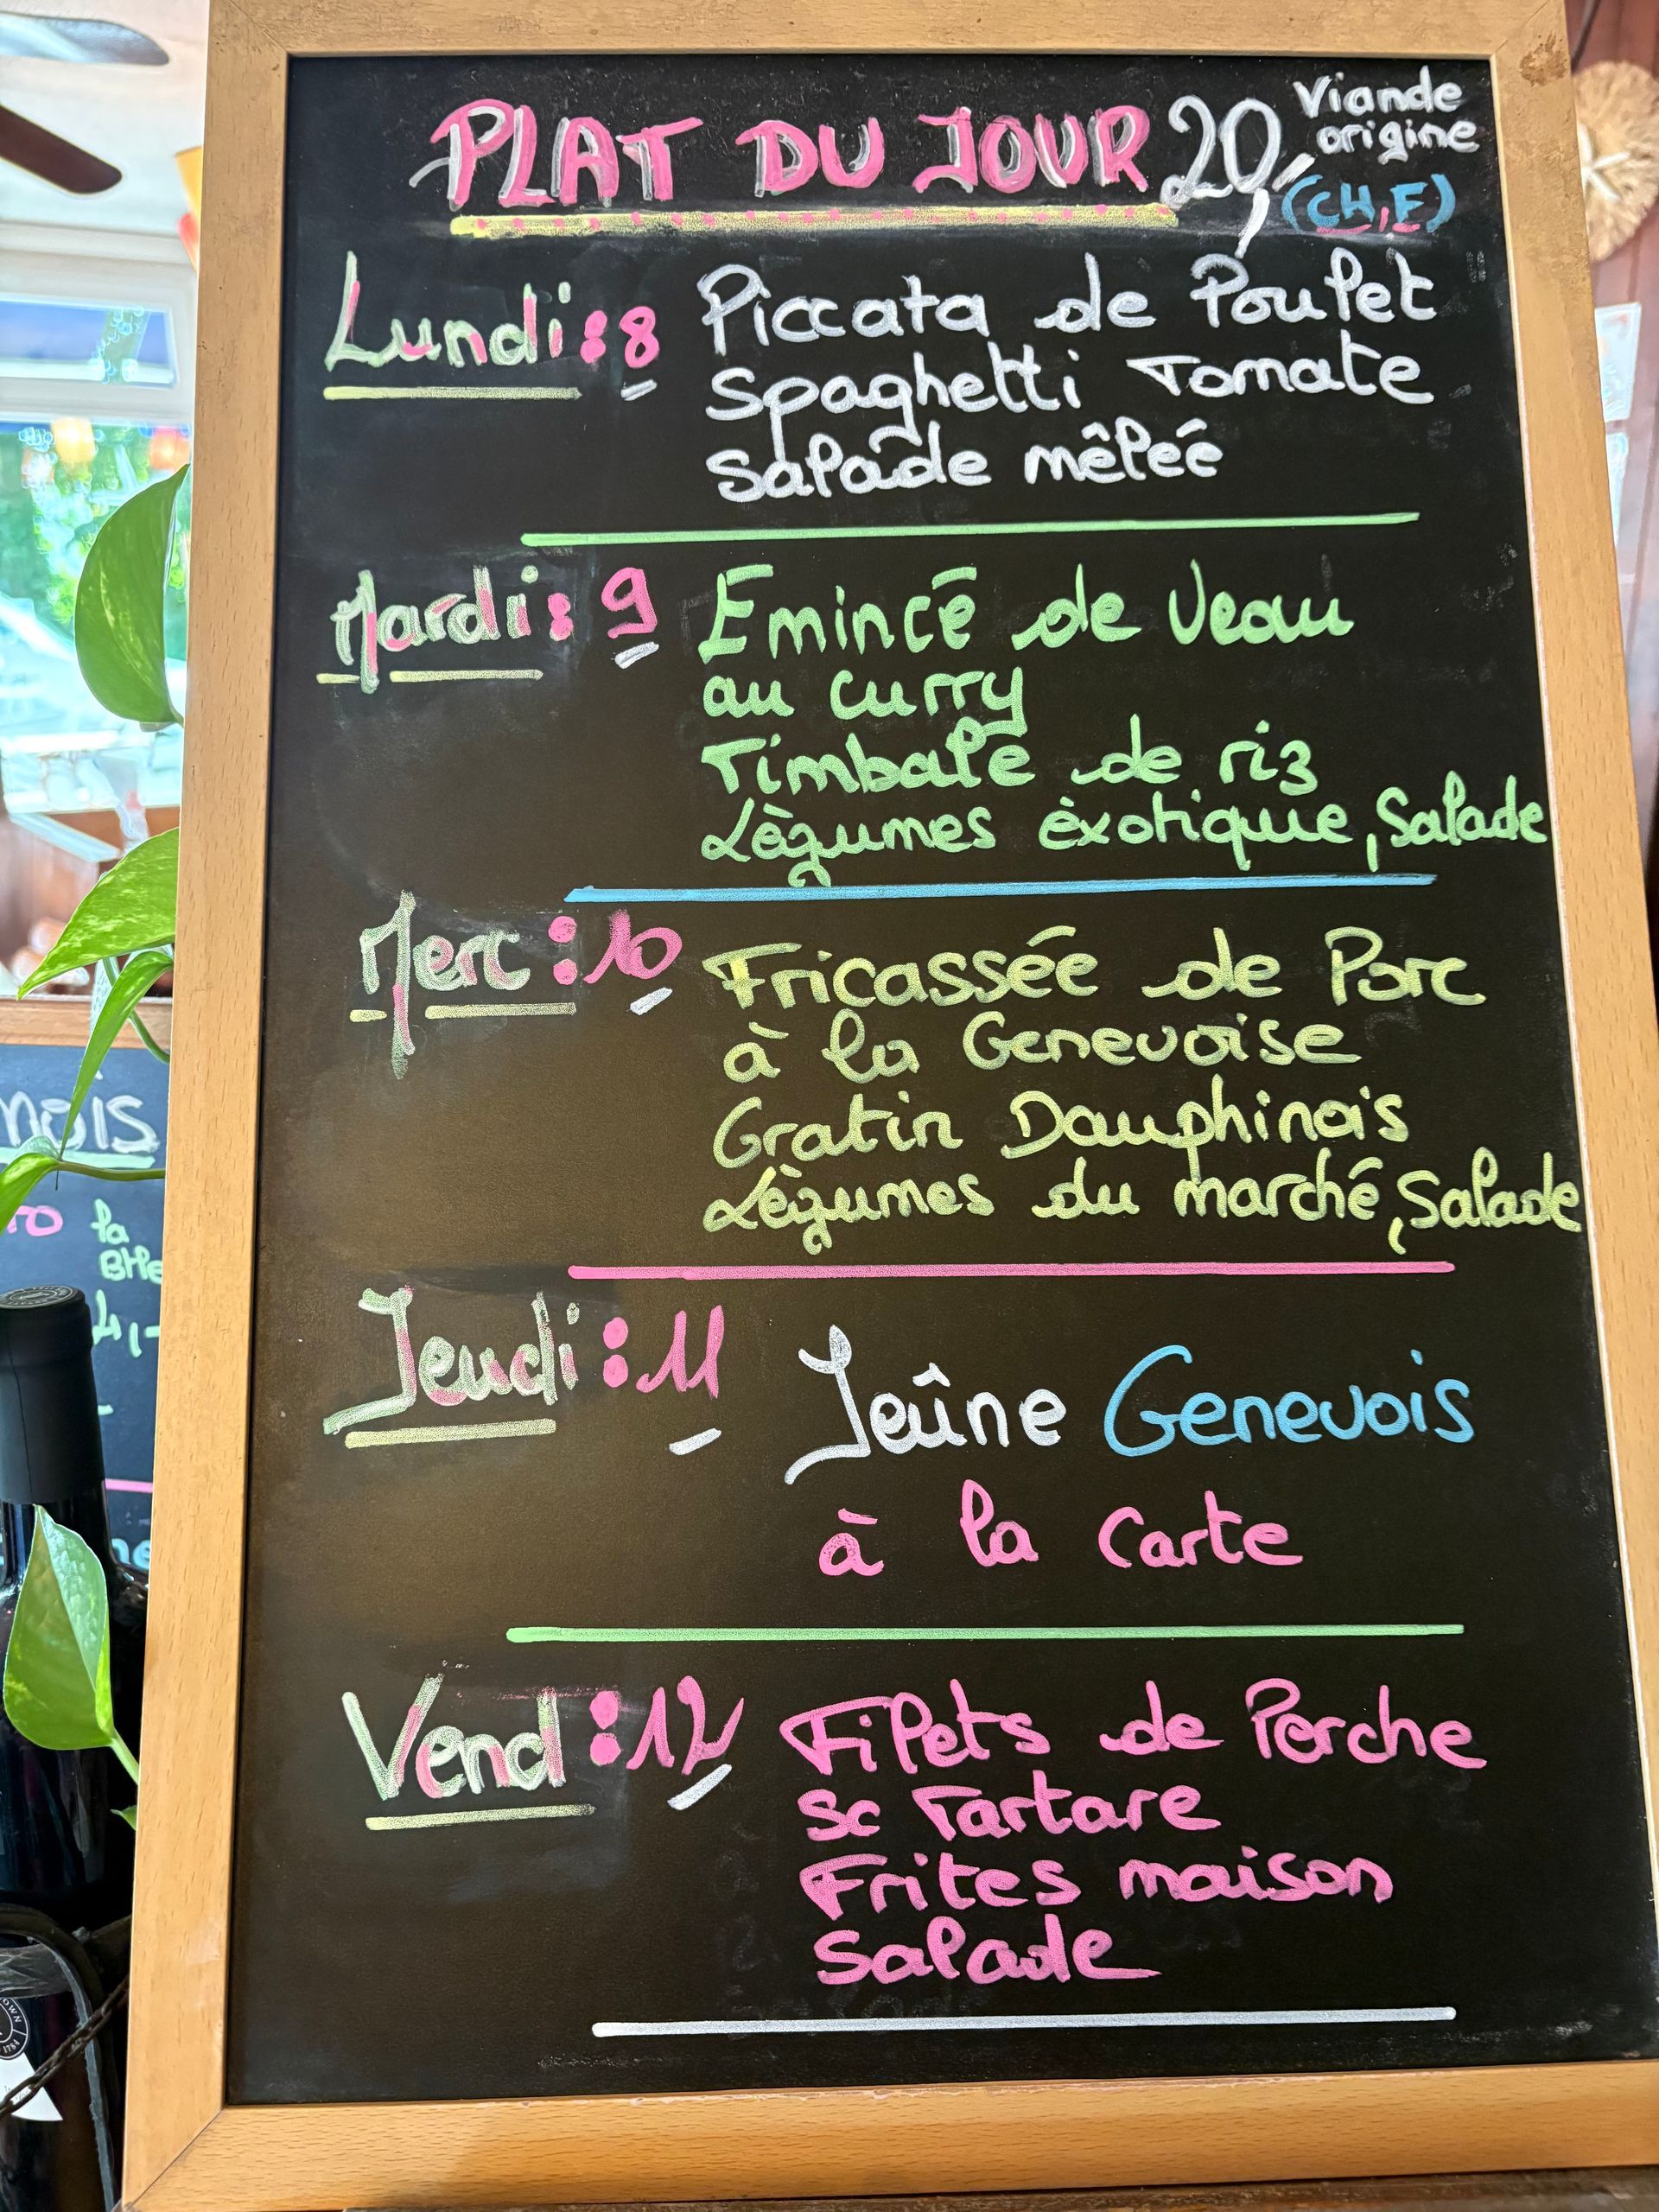 PLAT DU JOUR 20,-
Viande
origine
(CH, F)
Lundi : 8
Piccata de Poulet
Spaghetti Tomate
Salade mêléé
Mardi : 9
Emincé de Veau
au curry
Timbale de riz
Lègumes èxotique, Salade
Merc : 10
Fricassée de Porc
à la Genevoise
Gratin Dauphinois
Lègumes du marché, Salade
Jeudi : 11
Jeûne Genevois
à la carte
Vend : 12
Filets de Perche
Sc Tartare
Frites maison
Salade
mois
la
Btle